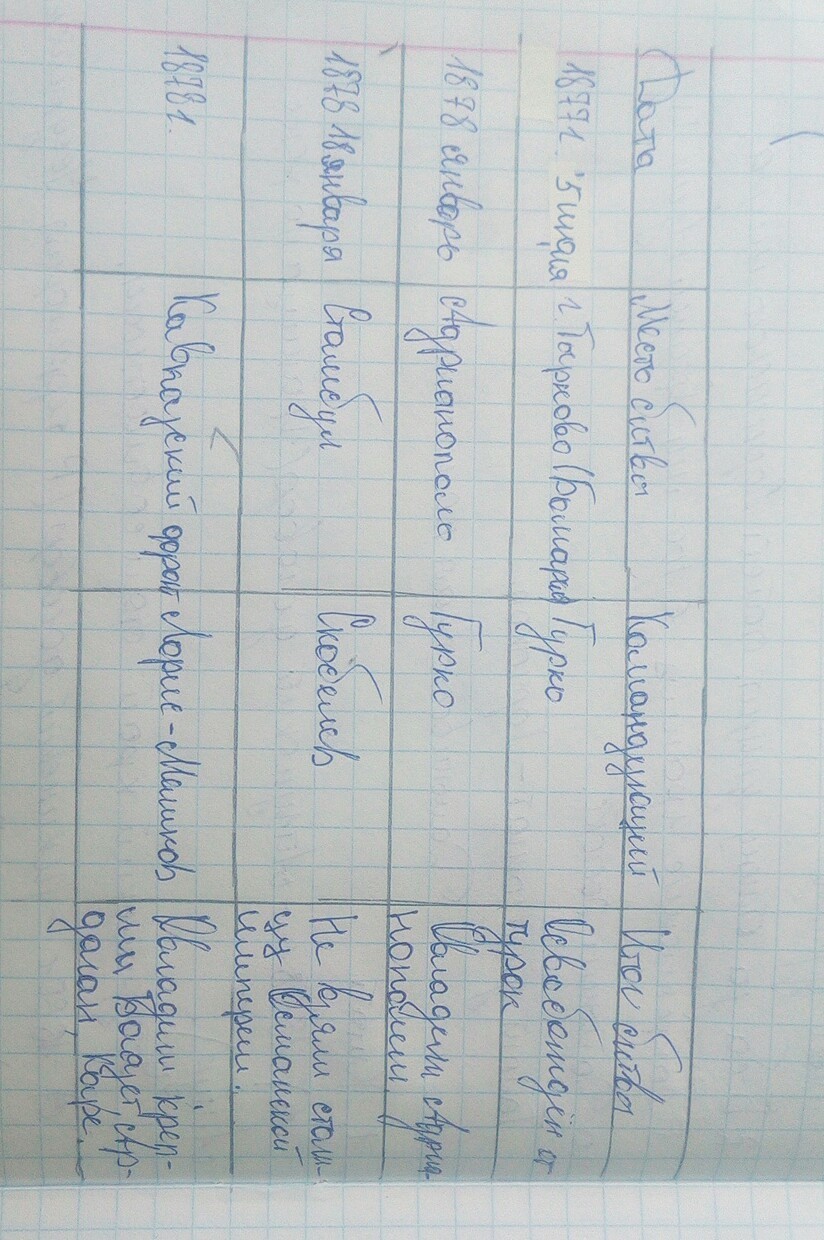 Дата Место битвы Командующий Итог битвы
1877г. 5 июля г. Тырково (Болгария) Гурко Освобождён от
турок
1878 январь Адрианополь Гурко Овладели Адриа-
нополем
1878 18 января Стамбул Скобелев Не взяли столи-
цу Османской
империи.
1878г. Кавказский фронт Лорис-Меликов Овладели креп-
ми Баязет, Ар-
даган, Карс.